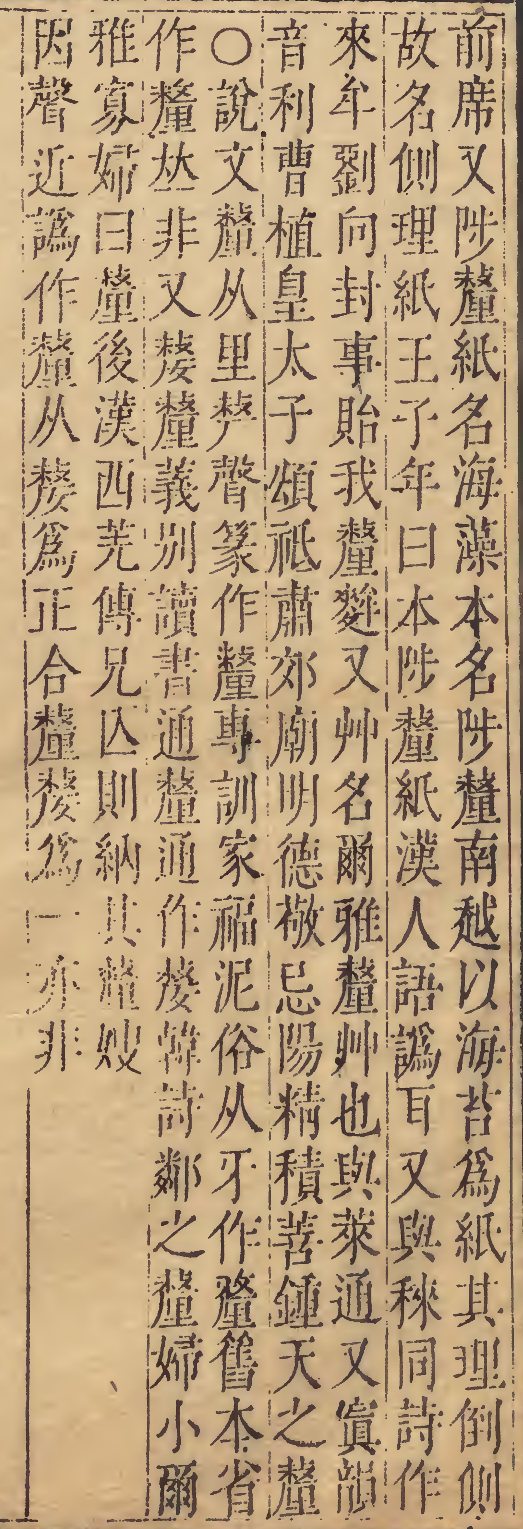 前席又陟釐紙名海藻本名陟釐南越以海苔爲紙其理倒側
故名側理紙王子年曰本陟釐紙漢人語譌耳又與䅘同詩作
來牟劉向封事貽我釐麰又艸名爾雅釐艸也與萊通又寘韻
音利曹植皇太子頌祗肅郊廟明德敬忌陽精積善鍾天之釐
○說文釐从里𠩺聲篆作釐專訓家福泥俗从牙作釐舊本省
作釐𠀤非又嫠釐義別讀書通釐通作嫠韓詩鄰之釐婦小爾
雅寡婦曰釐後漢西羌傳兄亾則納其釐嫂
因聲近譌作釐从嫠爲正合釐嫠爲一亦非